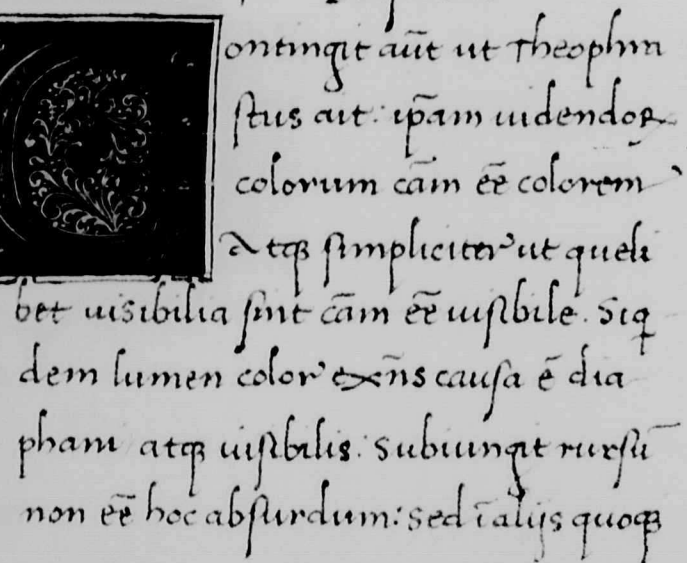 Contingit aūt ut Theophra
stus ait: ip̄am uidendoꝝ
colorum cām eē̄ colorem
Atqꝫ simpliciter ut queli
bet uisibilia sint cām eē̄ uisibile. Siq
dem lumen color exn̄s causa ē dia
phani atqꝫ uisibilis: Subiungit rursū
non eē̄ hoc absurdum: Sed ī alijs quoqꝫ